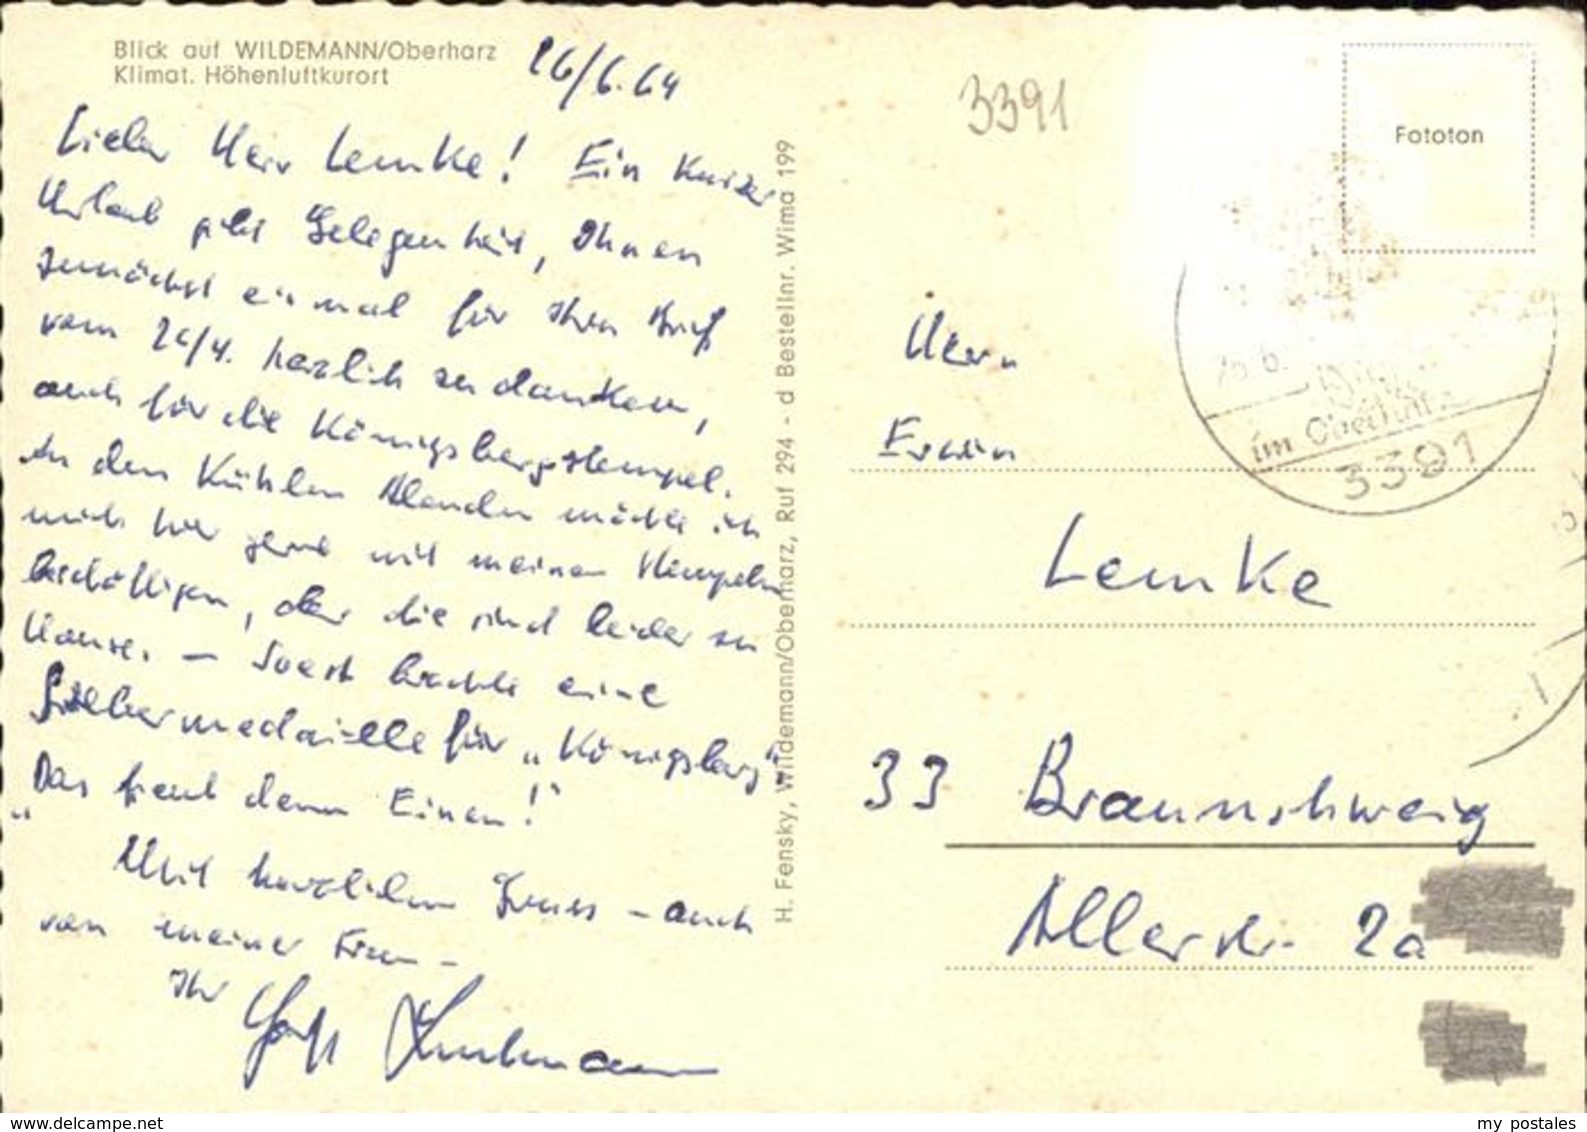 Blick auf WILDEMANN/Oberharz
Klimat. Höhenluftkurort
26/6.64
3391
Fototon
Lieber Herr Lemke! Ein kurzer
Urlaub gibt Gelegenheit, Ihnen
zunächst einmal für Ihren Brief
vom 26/4. herzlich zu danken,
auch für die Königsbergstempel.
An den kühlen Abenden möchte ich
mich hier gerne mit meinen Stempeln
beschäftigen, aber die sind leider zu
Hause. – Soest brachte eine
Silbermedaille für „Königsberg".
„Das freut denn Einen!"
Mit herzlichem Gruss – auch
von meiner Frau –
Ihr
H. Fensky, Wildemann/Oberharz, Ruf 294 - d Bestellnr. Wima 199
26.6.
im Oberharz
3391
Herrn
Erwin
Lemke
33 Braunschweig
Allerstr. 2a
www.delcampe.net
my_postales